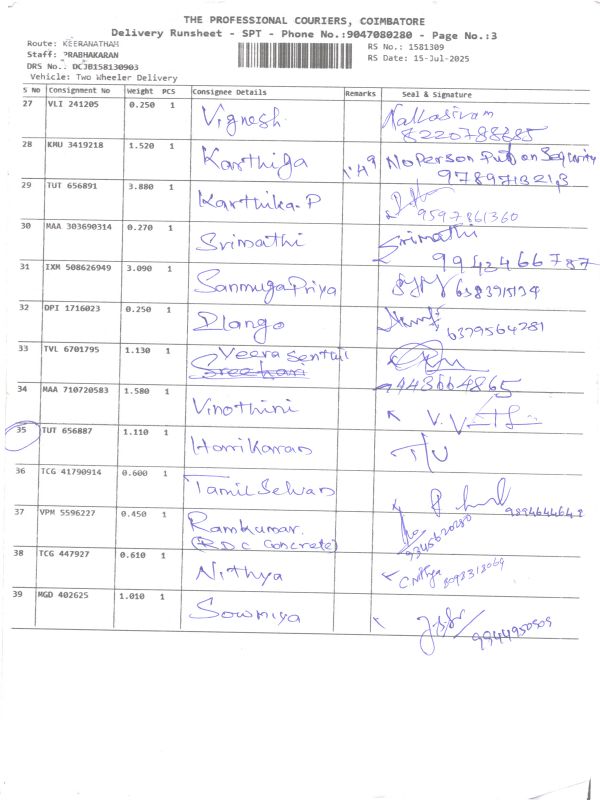 THE PROFESSIONAL COURIERS, COIMBATORE
Delivery Runsheet - SPT - Phone No.:9047080280 - Page No.:3
Route: KEERANATHAM
RS No.: 1581309
Staff: PRABHAKARAN
RS Date: 15-Jul-2025
DRS No.: DCJB158130903
Vehicle: Two Wheeler Delivery
S No Consignment No Weight PCS Consignee Details Remarks Seal & Signature
27 VLI 241205 0.250 1 Vignesh Nallasivam
28 KMU 3419218 1.520 1 Karthiga No Person Put on Security
9789713213
29 TUT 656891 3.880 1 Karthika.P
9597861360
30 MAA 303690314 0.270 1 Srimathi Srimathi
9942466787
31 IXM 508626949 3.090 1 SanmugaPriya
32 DPI 1716023 0.250 1 Elango
6379564281
33 TVL 6701795 1.130 1 Veera Senthil
Sreehari
9443664865
34 MAA 710720583 1.580 1 Vinothini
35 TUT 656887 1.110 1 Harikaran T/U
36 TCG 41790914 0.600 1 Tamil Selvan
37 VPM 5596227 0.450 1 Ramkumar.
(RDC Concrete)
9345620280
38 TCG 447927 0.610 1 Nithya C Nithya
39 MGD 402625 1.010 1 Sowmiya
9944950509